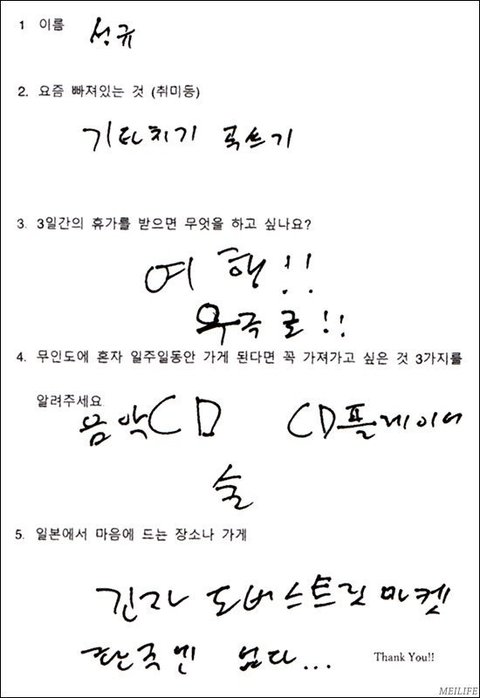 1 이름 성규
2. 요즘 빠져있는 것 (취미등)
기타치기 곡쓰기
3. 3일간의 휴가를 받으면 무엇을 하고 싶나요?
여행!!
영국로!!
4. 무인도에 혼자 일주일동안 가게 된다면 꼭 가져가고 싶은 것 3가지를
알려주세요
음악CD CD플레이어
술
5. 일본에서 마음에 드는 장소나 가게
긴자 도버스트릿마켓
한국엔 없다...
Thank You!!
MEILIFE